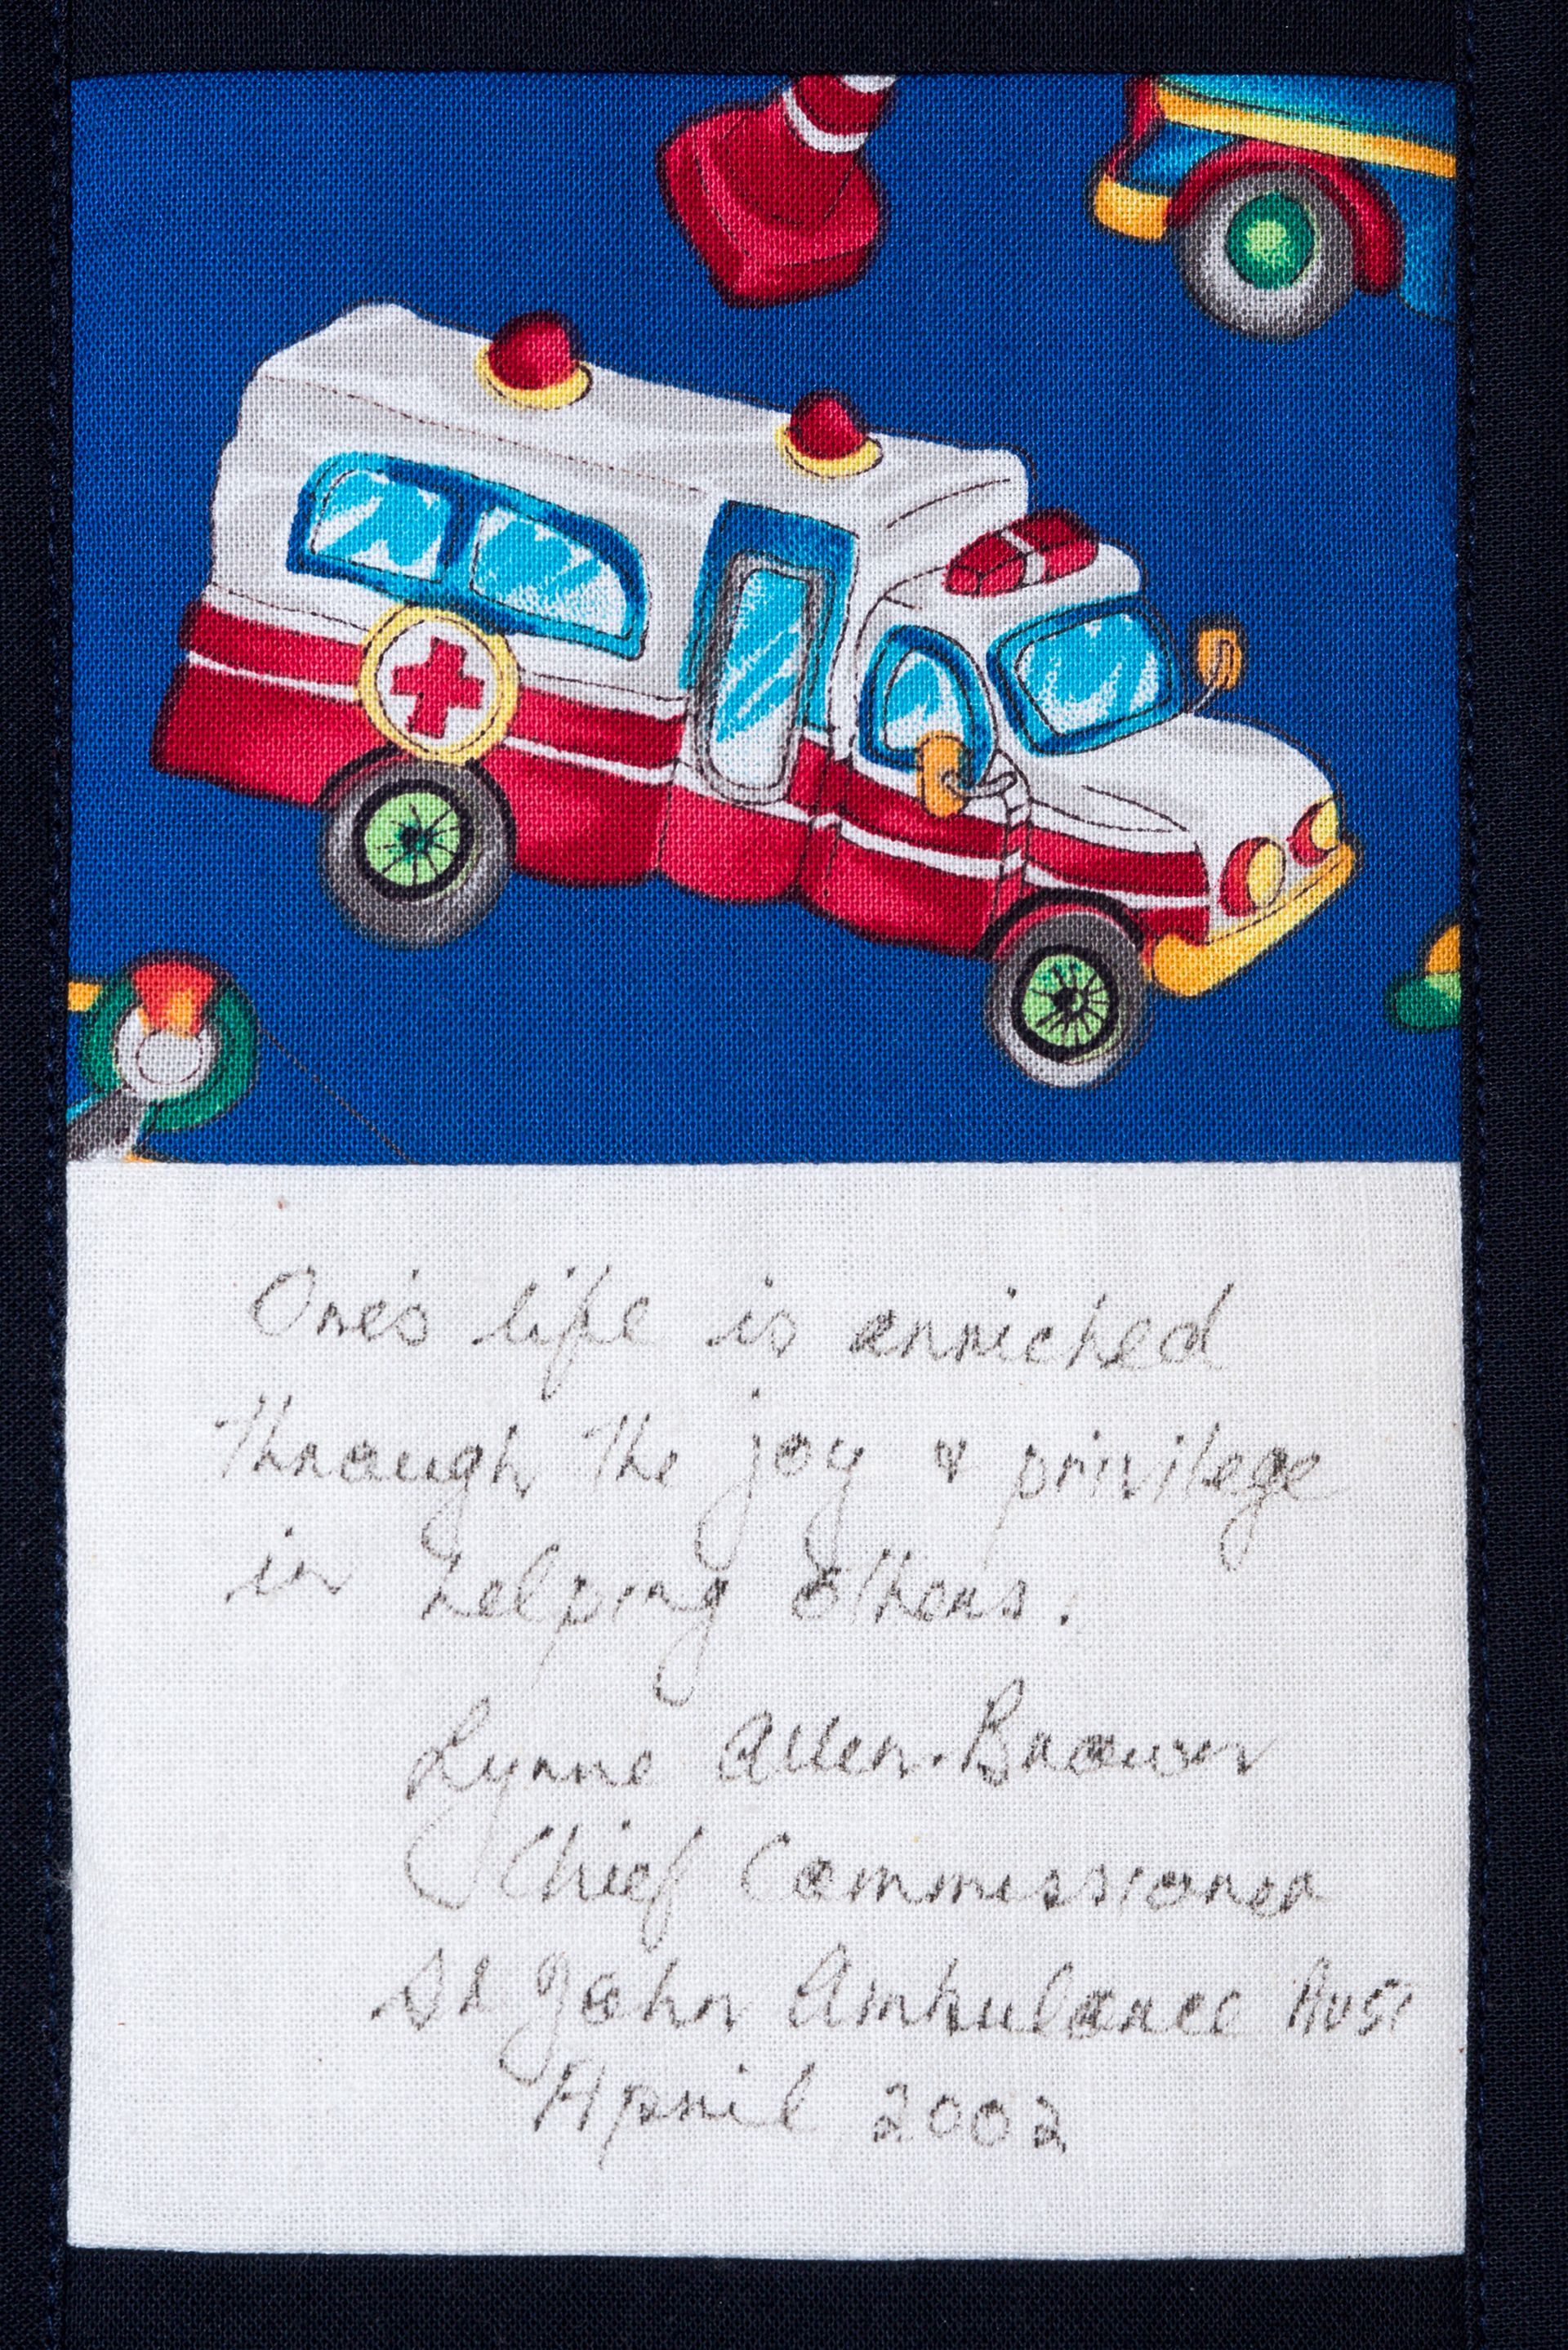 One's life is enriched
through the joy & privilege
in helping others.
Lynne Allen-Brown
Chief Commissioner
St John Ambulance Aust
April 2002